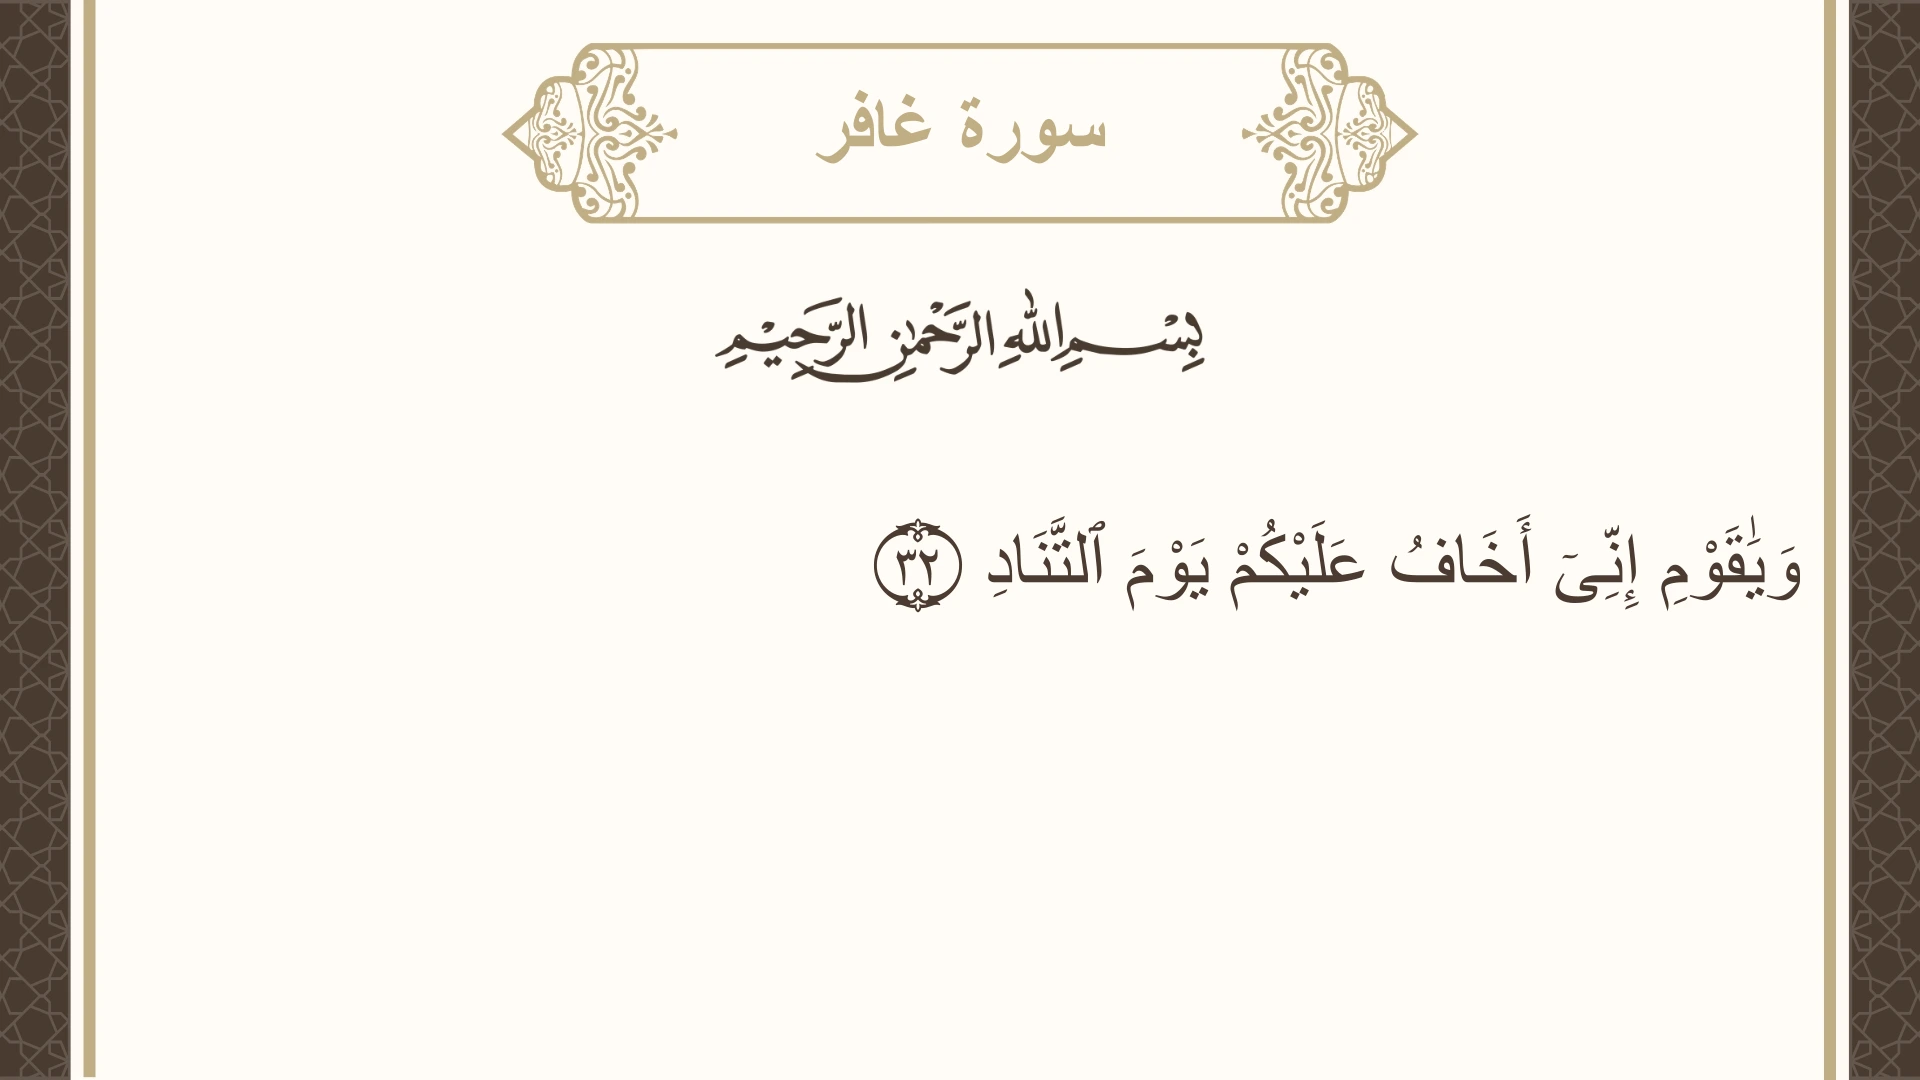 سورة غافر
بِسْمِ اللهِ الرَّحْمٰنِ الرَّحِيْمِ
وَيَٰقَوْمِ إِنِّىٓ أَخَافُ عَلَيْكُمْ يَوْمَ ٱلتَّنَادِ ٣٢